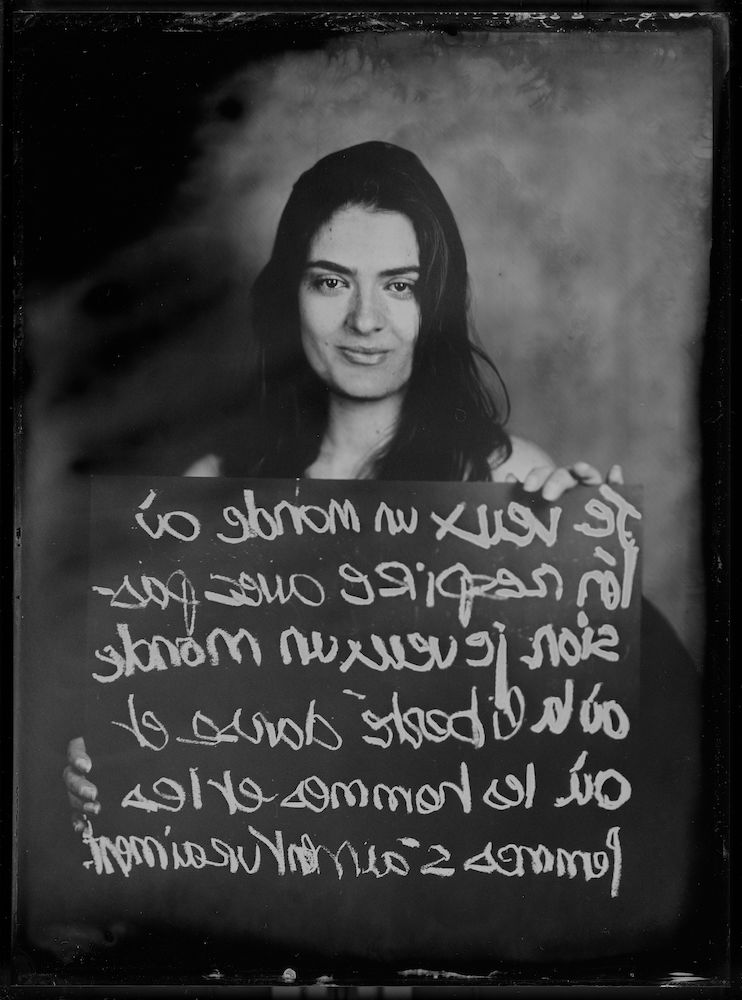 Je veux un monde où
l'on respire avec pas-
sion. je veux un monde
où la liberté danse et
où les hommes et les
femmes s'aiment vraiment